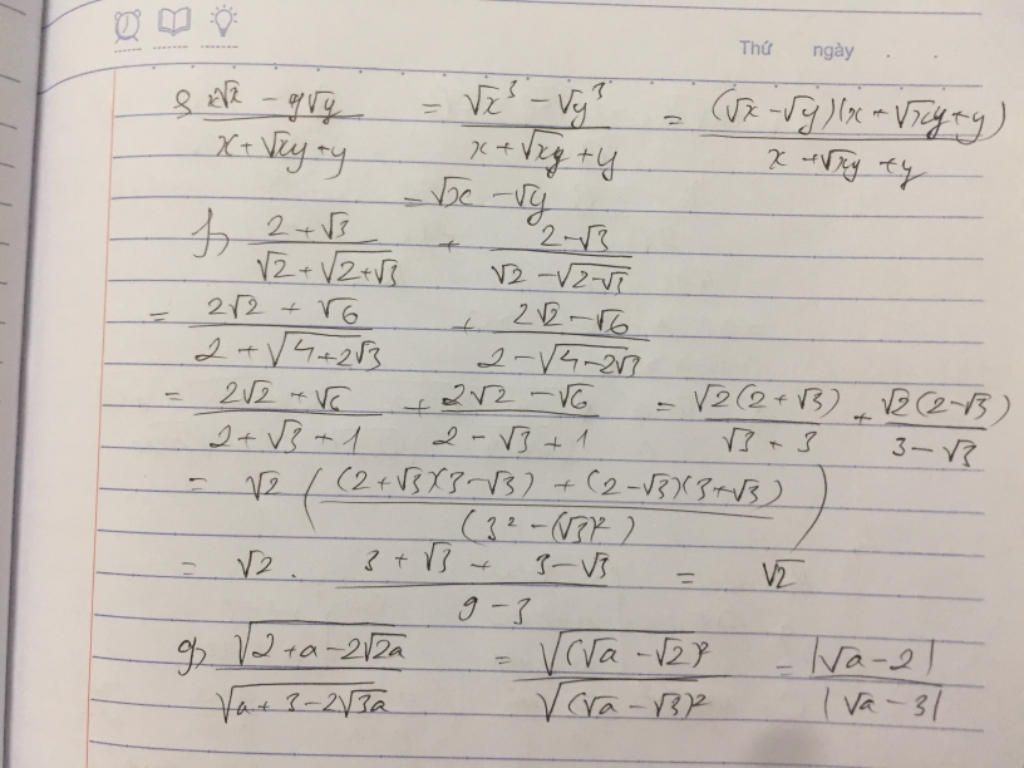 Thứ ngày . .
e, (x√x − y√y)/(x + √xy + y) = (√x³ − √y³)/(x + √xy + y) = ((√x − √y)(x + √xy + y))/(x + √xy + y)
= √x − √y
f, (2 + √3)/(√2 + √(2+√3)) + (2 − √3)/(√2 − √(2−√3))
= (2√2 + √6)/(2 + √(4+2√3)) + (2√2 − √6)/(2 − √(4−2√3))
= (2√2 + √6)/(2 + √3 + 1) + (2√2 − √6)/(2 − √3 + 1) = √2(2 + √3)/(√3 + 3) + √2(2 − √3)/(3 − √3)
= √2 (((2 + √3)(3 − √3) + (2 − √3)(3 + √3))/(3² − (√3)²))
= √2 . (3 + √3 + 3 − √3)/(9 − 3) = √2
g, √(2 + a − 2√2a)/√(a + 3 − 2√3a) = √((√a − √2)²)/√((√a − √3)²) = |√a − 2|/|√a − 3|